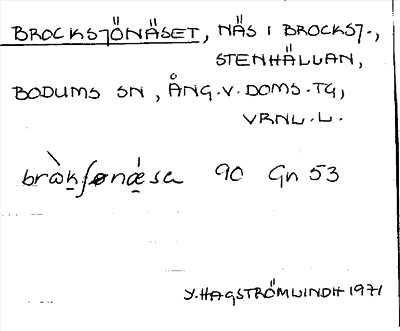 BROCKSJÖNÄSET, NÄS I BROCKSJ.,
STENHÄLLAN,
BODUMS SN, ÅNG.V.DOMS.TG,
VRNL.L.
90 Gn 53
Y.HAGSTRÖMLINDH 1971